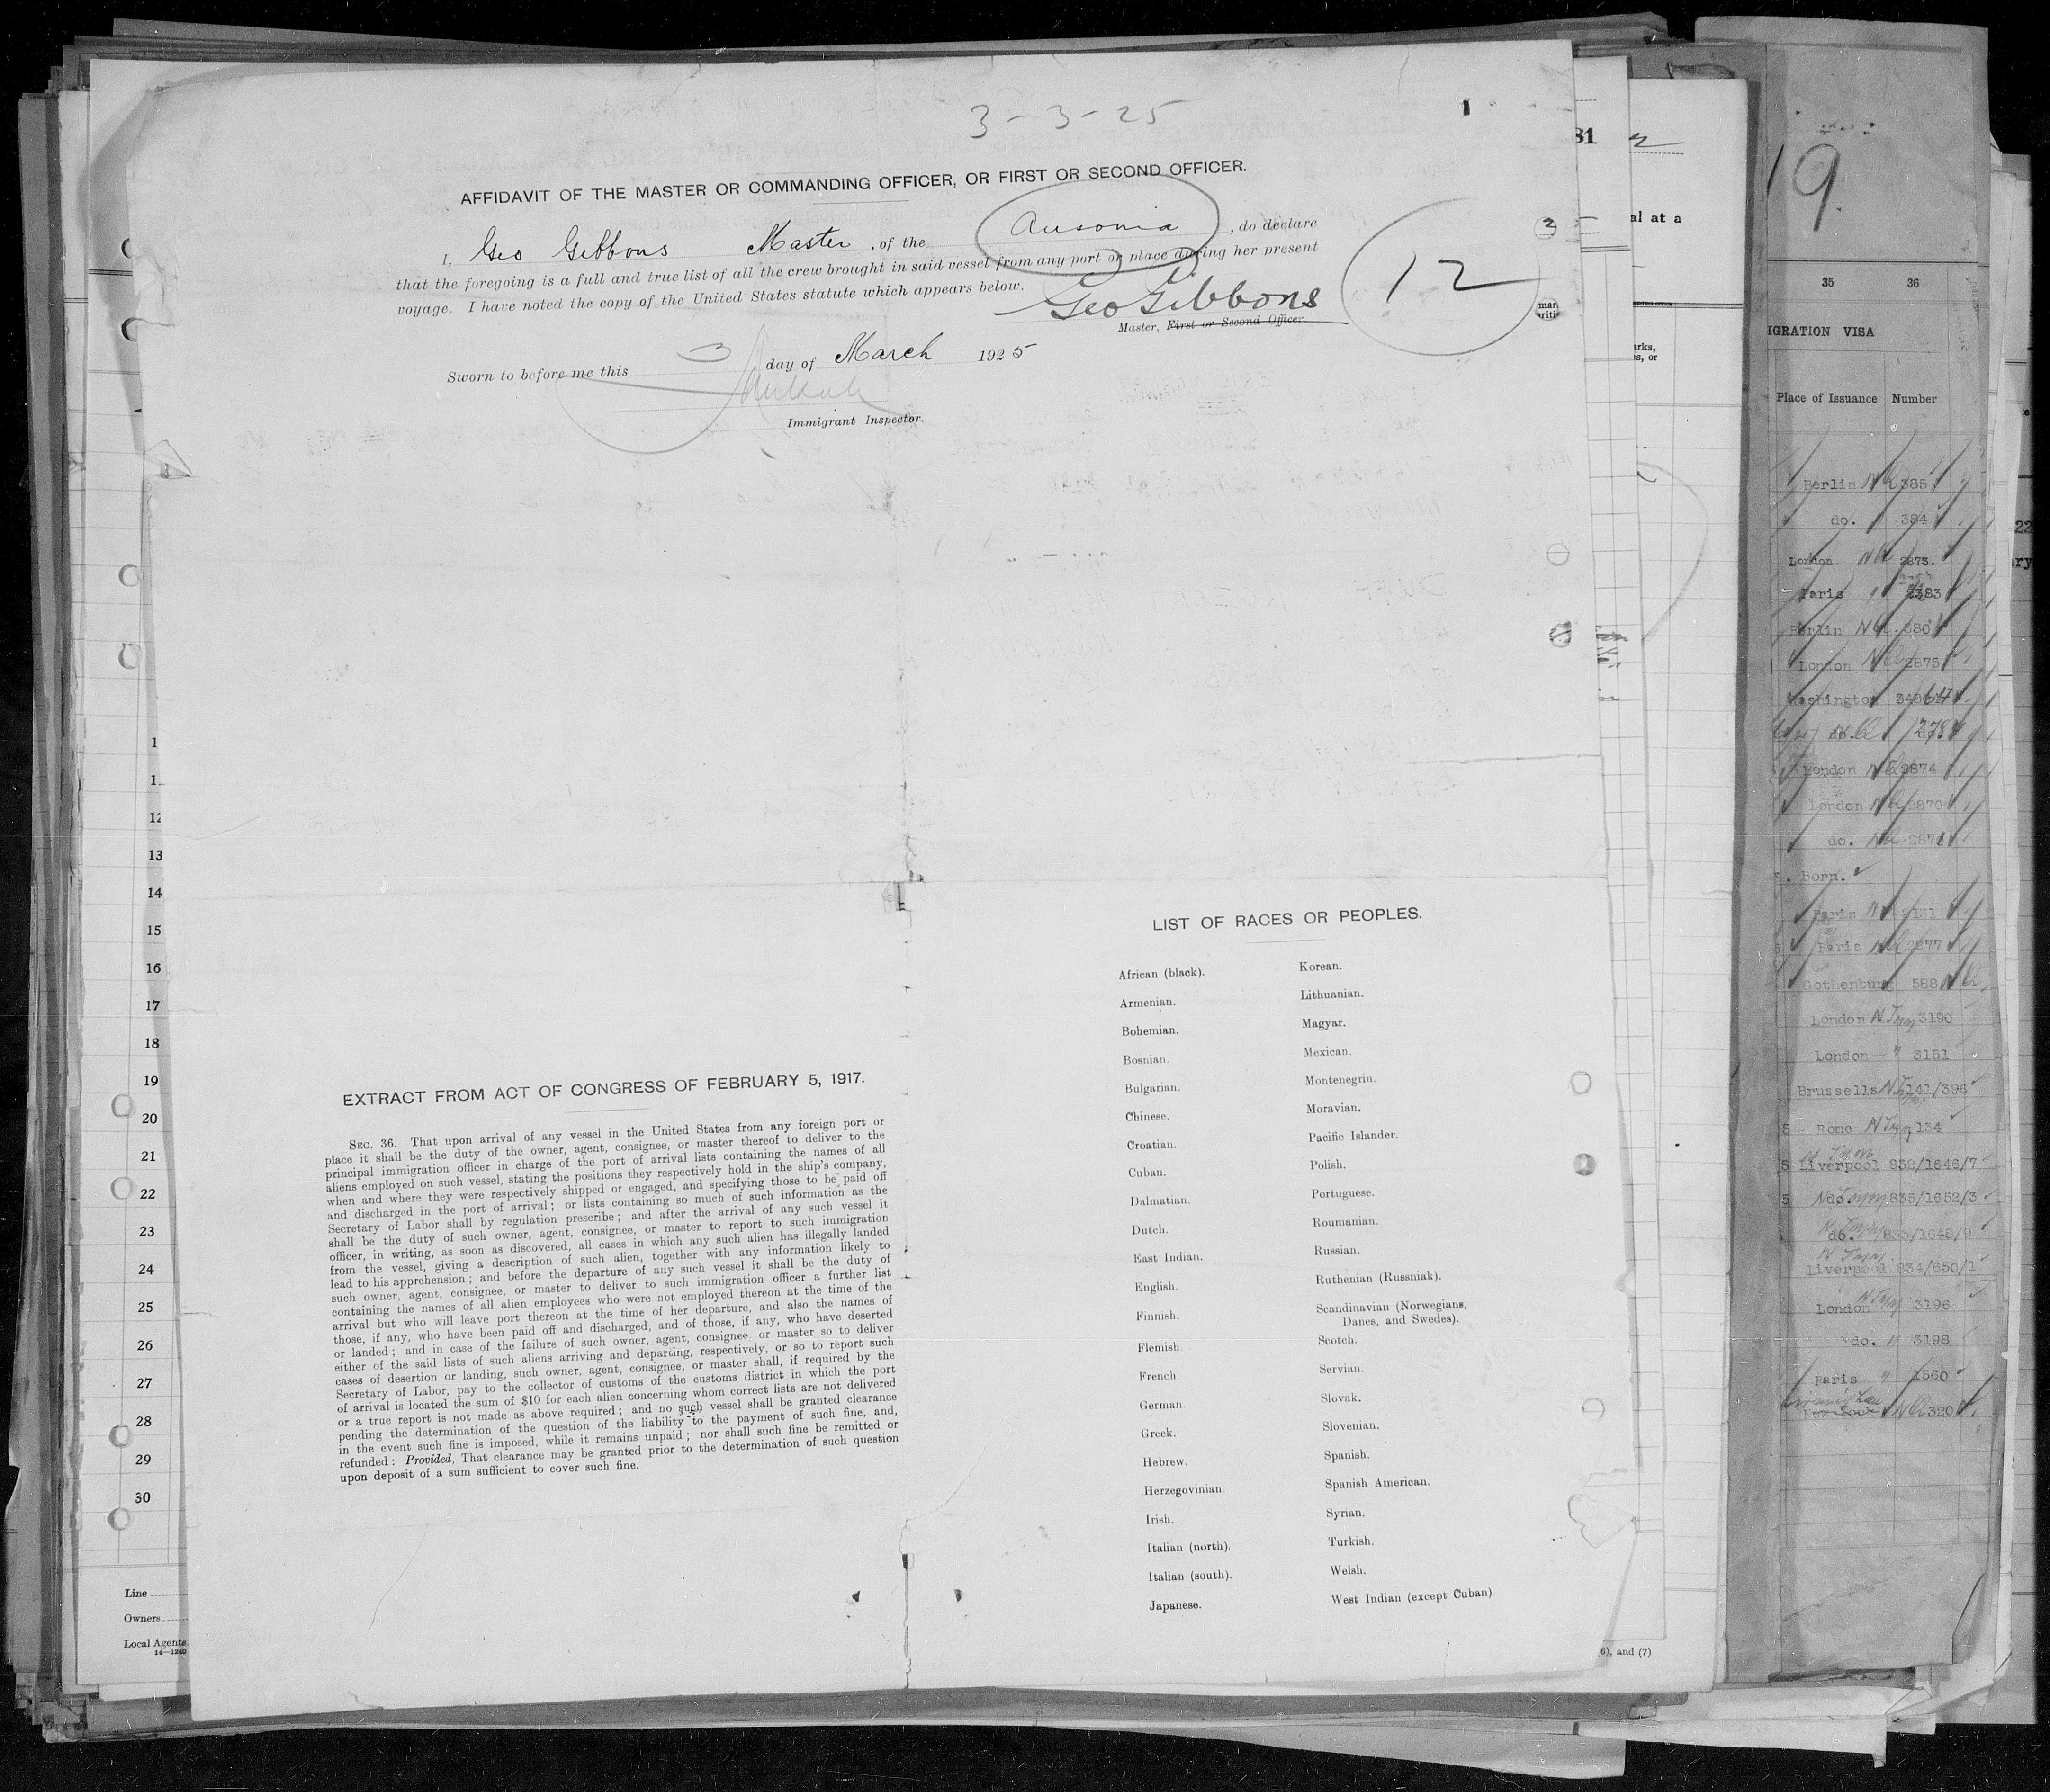 3-3-25
AFFIDAVIT OF THE MASTER OR COMMANDING OFFICER, OR FIRST OR SECOND OFFICER.
I, Geo Gibbons Master, of the Ausonia, do declare
that the foregoing is a full and true list of all the crew brought in said vessel from any port or place during her present
voyage. I have noted the copy of the United States statute which appears below.
Geo Gibbons
Master, First or Second Officer.
12
Sworn to before me this 3 day of March 1925
Immigrant Inspector.
EXTRACT FROM ACT OF CONGRESS OF FEBRUARY 5, 1917.
SEC. 36. That upon arrival of any vessel in the United States from any foreign port or
place it shall be the duty of the owner, agent, consignee, or master thereof to deliver to the
principal immigration officer in charge of the port of arrival lists containing the names of all
aliens employed on such vessel, stating the positions they respectively hold in the ship's company,
when and where they were respectively shipped or engaged, and specifying those to be paid off
and discharged in the port of arrival; or lists containing so much of such information as the
Secretary of Labor shall by regulation prescribe; and after the arrival of any such vessel it
shall be the duty of such owner, agent, consignee, or master to report to such immigration
officer, in writing, as soon as discovered, all cases in which any such alien has illegally landed
from the vessel, giving a description of such alien, together with any information likely to
lead to his apprehension; and before the departure of any such vessel it shall be the duty of
such owner, agent, consignee, or master to deliver to such immigration officer a further list
containing the names of all alien employees who were not employed thereon at the time of the
arrival but who will leave port thereon at the time of her departure, and also the names of
those, if any, who have been paid off and discharged, and of those, if any, who have deserted
or landed; and in case of the failure of such owner, agent, consignee, or master so to deliver
either of the said lists of such aliens arriving and departing, respectively, or so to report such
cases of desertion or landing, such owner, agent, consignee, or master shall, if required by the
Secretary of Labor, pay to the collector of customs of the customs district in which the port
of arrival is located the sum of $10 for each alien concerning whom correct lists are not delivered
or a true report is not made as above required; and no such vessel shall be granted clearance
pending the determination of the question of the liability to the payment of such fine, and,
in the event such fine is imposed, while it remains unpaid; nor shall such fine be remitted or
refunded: Provided, That clearance may be granted prior to the determination of such question
upon deposit of a sum sufficient to cover such fine.
LIST OF RACES OR PEOPLES.
African (black).
Armenian.
Bohemian.
Bosnian.
Bulgarian.
Chinese.
Croatian.
Cuban.
Dalmatian.
Dutch.
East Indian.
English.
Finnish.
Flemish.
French.
German.
Greek.
Hebrew.
Herzegovinian.
Irish.
Italian (north).
Italian (south).
Japanese.
Korean.
Lithuanian.
Magyar.
Mexican.
Montenegrin.
Moravian.
Pacific Islander.
Polish.
Portuguese.
Roumanian.
Russian.
Ruthenian (Russniak).
Scandinavian (Norwegians,
Danes, and Swedes).
Scotch.
Servian.
Slovak.
Slovenian.
Spanish.
Spanish American.
Syrian.
Turkish.
Welsh.
West Indian (except Cuban)
12
13
14
15
16
17
18
19
20
21
22
23
24
25
26
27
28
29
30
Line
Owners
Local Agents
14—1240
81
al at a
6), and (7)
19.
35 36
IGRATION VISA
Place of Issuance Number
Berlin 385
do. 384
London 2873.
Paris
Berlin 380
London 2875
Washington
London 2874
London 2870
do.
Born.
Paris
Paris 2877
Gothenburg 588
London 3190
London 3151
Brussells 141/396
Rome 134
Liverpool 832/1646/7
do. 835/1652/3
do.
Liverpool 834/650/1
London 3196
do. 3198
Paris 1560
320